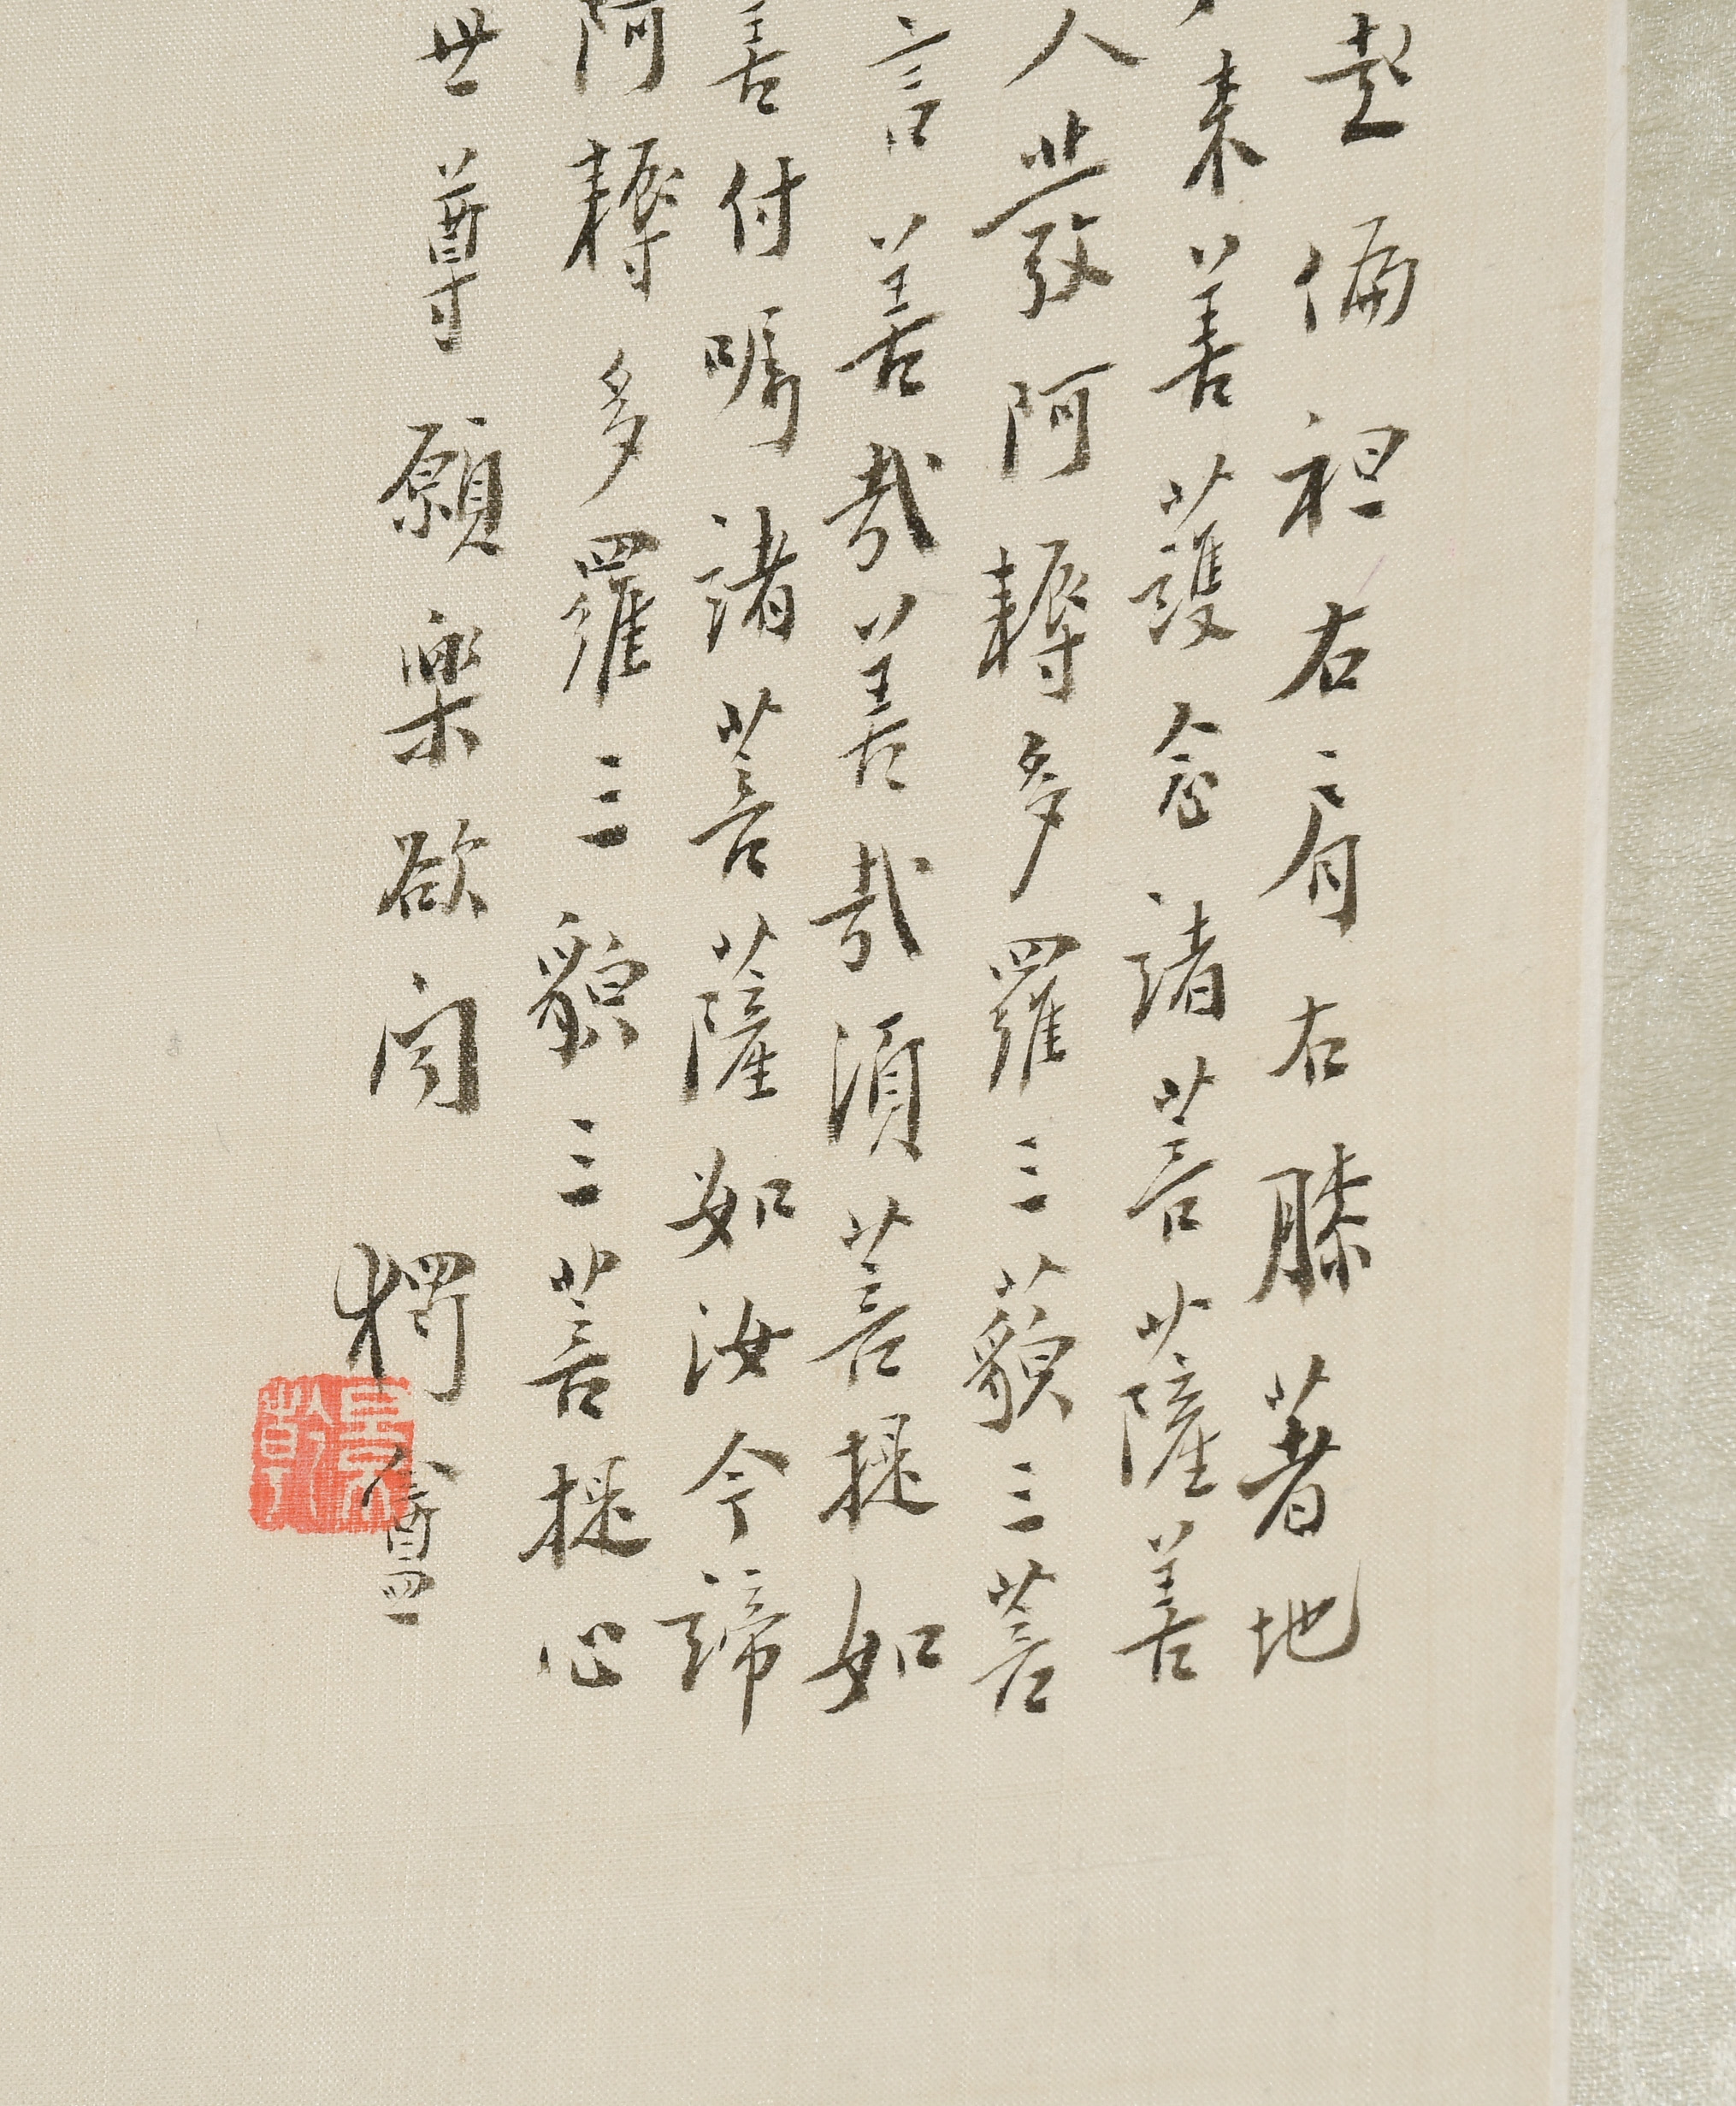 起偏袒右肩右膝著地
来善護念諸菩薩善
人發阿耨多羅三藐三菩
言善哉善哉須菩提如
善付囑諸菩薩如汝今諦
阿耨多羅三藐三菩提心
世尊願樂欲闻